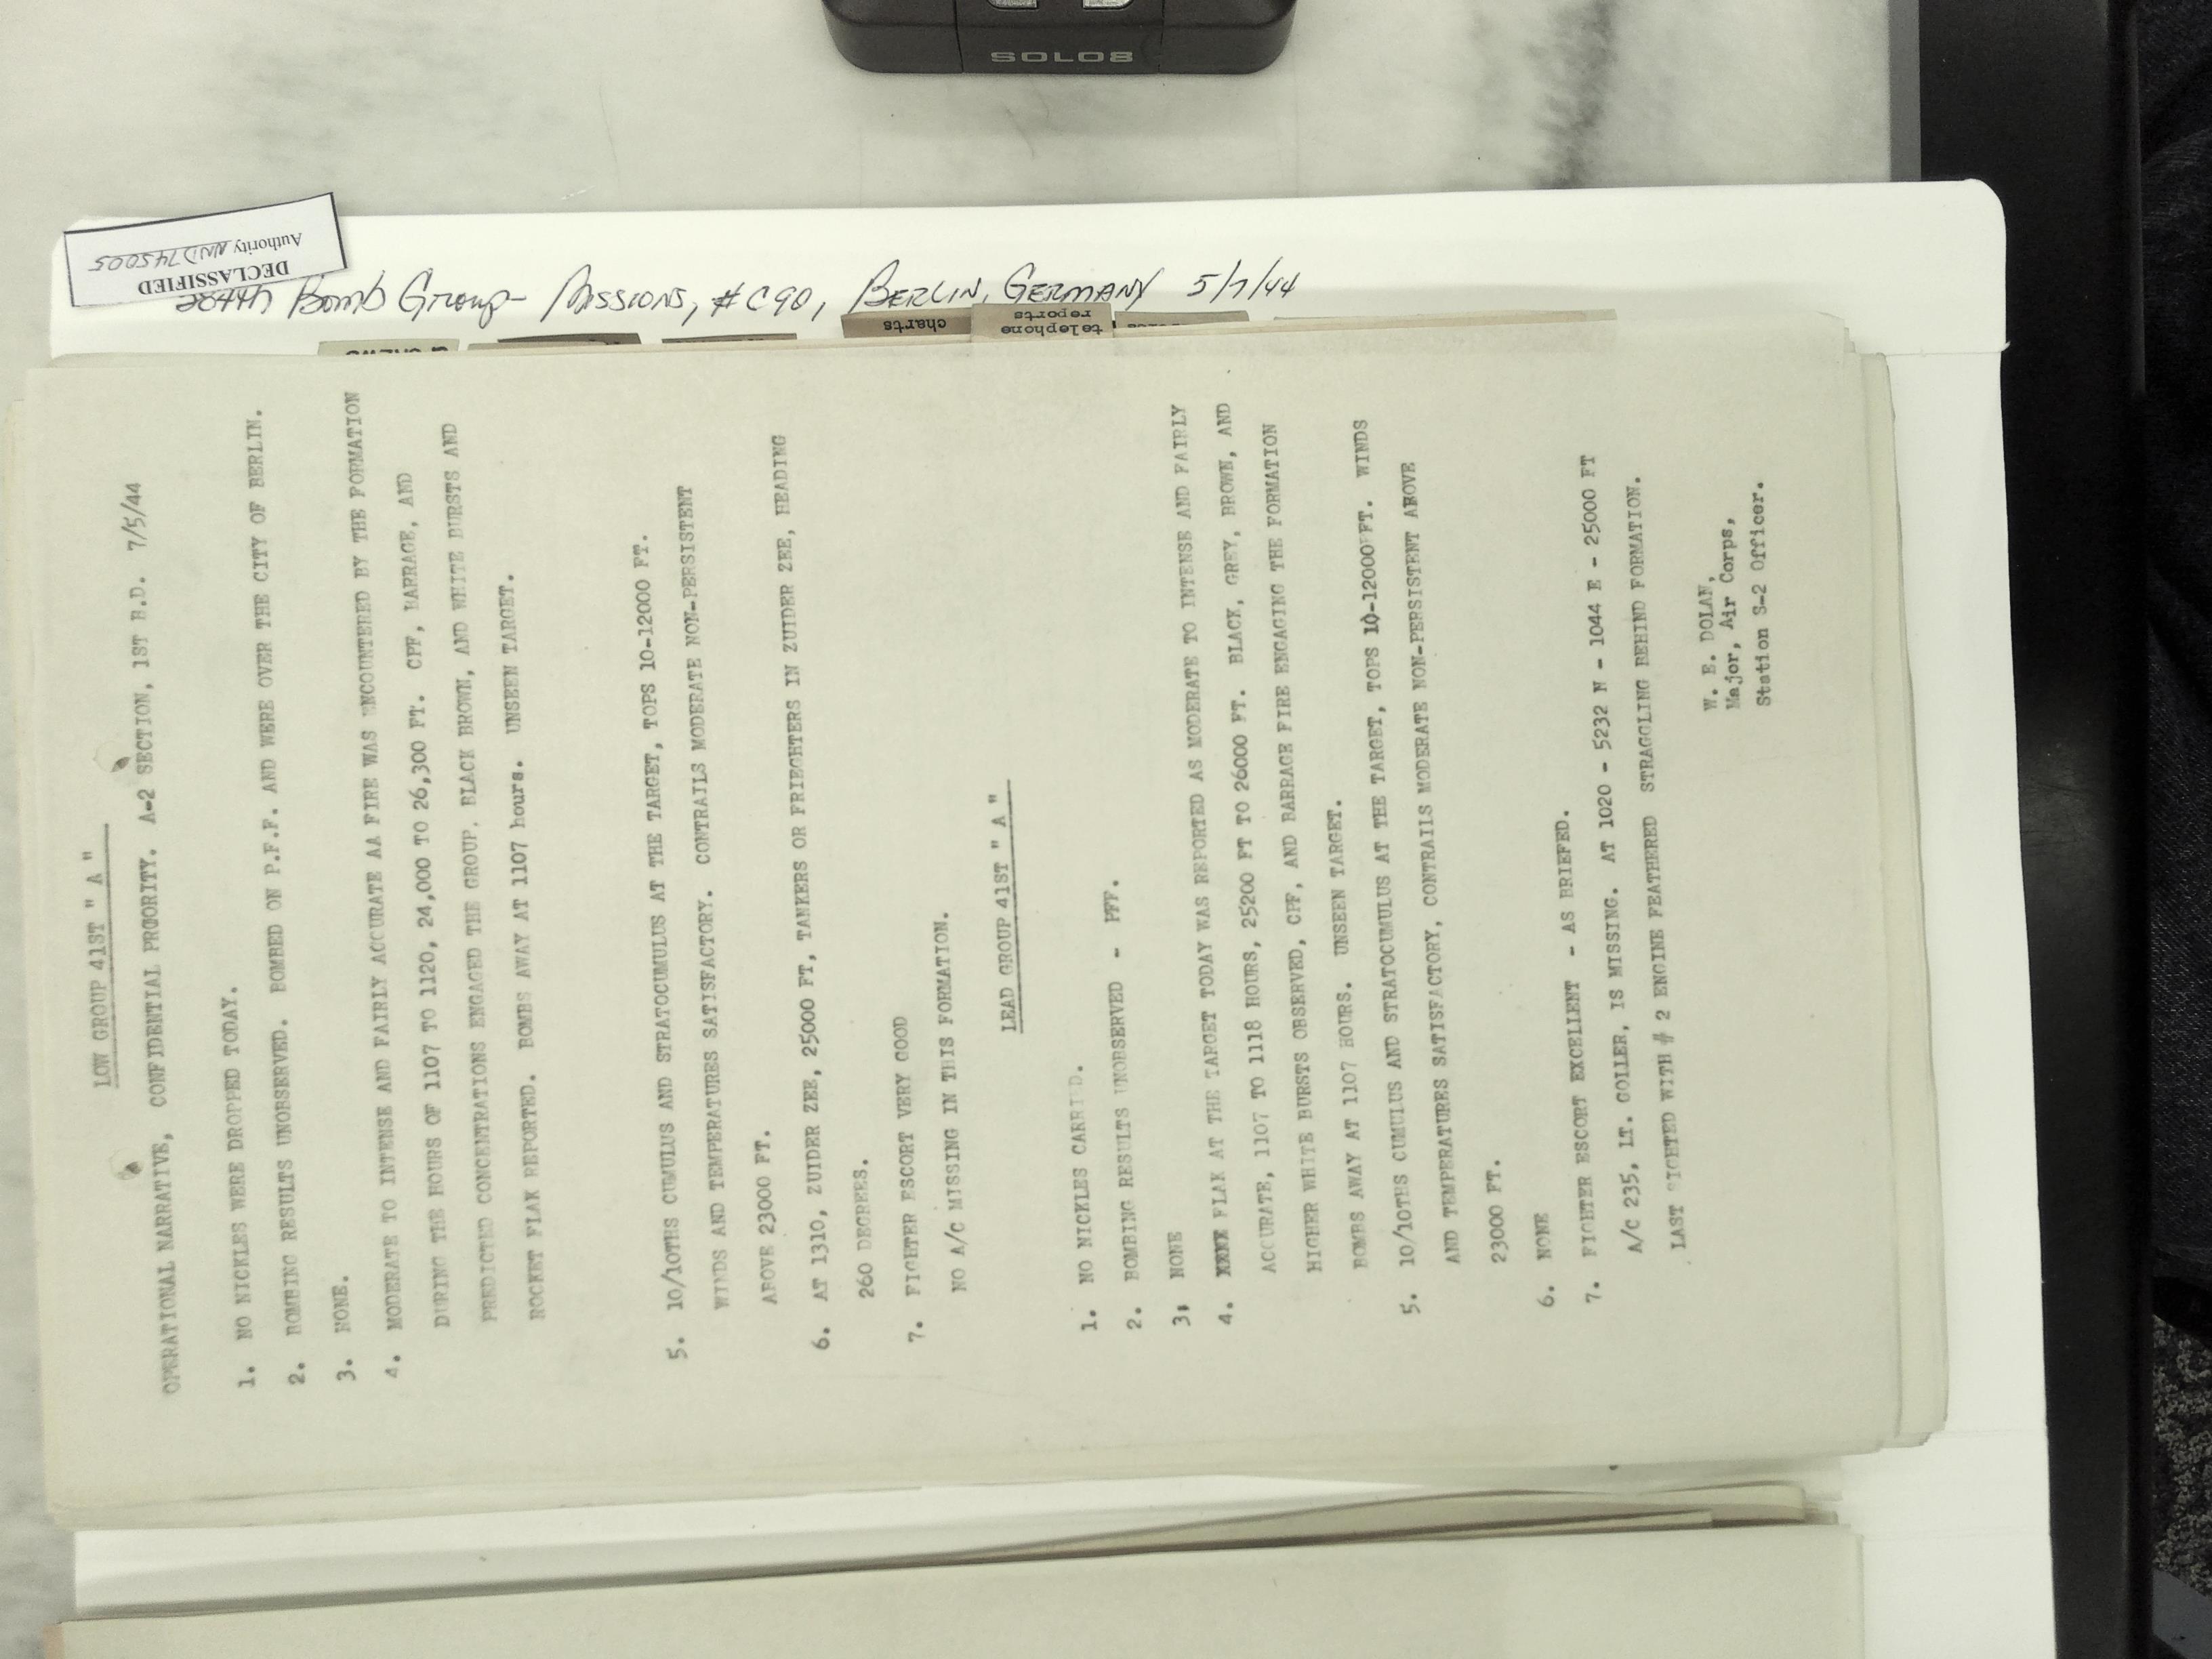 SOLO8
DECLASSIFIED
Authority NND745005
384th Bomb Group- Missions, #C90, Berlin, Germany 5/7/44
charts
telephone
reports
LOW GROUP 41ST " A "
OPERATIONAL NARRATIVE, CONFIDENTIAL PRIORITY. A-2 SECTION, 1ST B.D. 7/5/44
1. NO NICKLES WERE DROPPED TODAY.
2. BOMBING RESULTS UNOBSERVED. BOMBED ON P.F.F. AND WERE OVER THE CITY OF BERLIN.
3. NONE.
4. MODERATE TO INTENSE AND FAIRLY ACCURATE AA FIRE WAS ENCOUNTERED BY THE FORMATION
DURING THE HOURS OF 1107 TO 1120, 24,000 TO 26,300 FT. CPF, BARRAGE, AND
PREDICTED CONCENTRATIONS ENGAGED THE GROUP. BLACK BROWN, AND WHITE BURSTS AND
ROCKET FLAK REPORTED. BOMBS AWAY AT 1107 hours. UNSEEN TARGET.
5. 10/10THS CUMULUS AND STRATOCUMULUS AT THE TARGET, TOPS 10-12000 FT.
WINDS AND TEMPERATURES SATISFACTORY. CONTRAILS MODERATE NON-PERSISTENT
ABOVE 23000 FT.
6. AT 1310, ZUIDER ZEE, 25000 FT, TANKERS OR FRIEGHTERS IN ZUIDER ZEE, HEADING
260 DEGREES.
7. FIGHTER ESCORT VERY GOOD
NO A/C MISSING IN THIS FORMATION.
LEAD GROUP 41ST " A "
1. NO NICKLES CARRIED.
2. BOMBING RESULTS UNOBSERVED - PFF.
3. NONE
4. FLAK AT THE TARGET TODAY WAS REPORTED AS MODERATE TO INTENSE AND FAIRLY
ACCURATE, 1107 TO 1118 HOURS, 25200 FT TO 26000 FT. BLACK, GREY, BROWN, AND
HIGHER WHITE BURSTS OBSERVED, CPF, AND BARRAGE FIRE ENGAGING THE FORMATION
BOMBS AWAY AT 1107 HOURS. UNSEEN TARGET.
5. 10/10THS CUMULUS AND STRATOCUMULUS AT THE TARGET, TOPS 10-12000FT. WINDS
AND TEMPERATURES SATISFACTORY, CONTRAILS MODERATE NON-PERSISTENT ABOVE
23000 FT.
6. NONE
7. FIGHTER ESCORT EXCELLENT - AS BRIEFED.
A/C 235, LT. GOLLER, IS MISSING. AT 1020 - 5232 N - 1044 E - 25000 FT
LAST SIGHTED WITH # 2 ENGINE FEATHERED STRAGGLING BEHIND FORMATION.
W. E. DOLAN,
Major, Air Corps,
Station S-2 Officer.